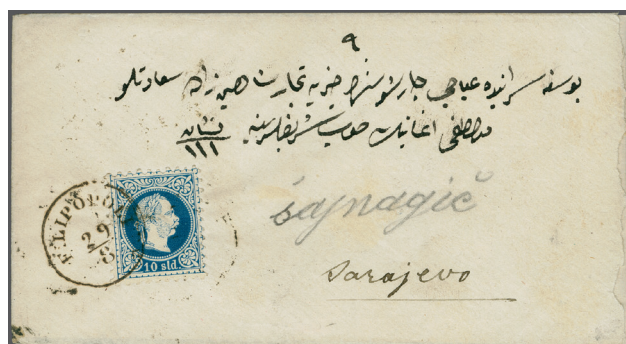 ٩
بوسنه سراينده عباجى چارشوسنده خيريه تجار شاهين زاده سعادتلو
مصطفى اغانك صوب
نشان
١١١
FILIPOPOL
29
8
10 sld.
šajnagić
Sarajevo